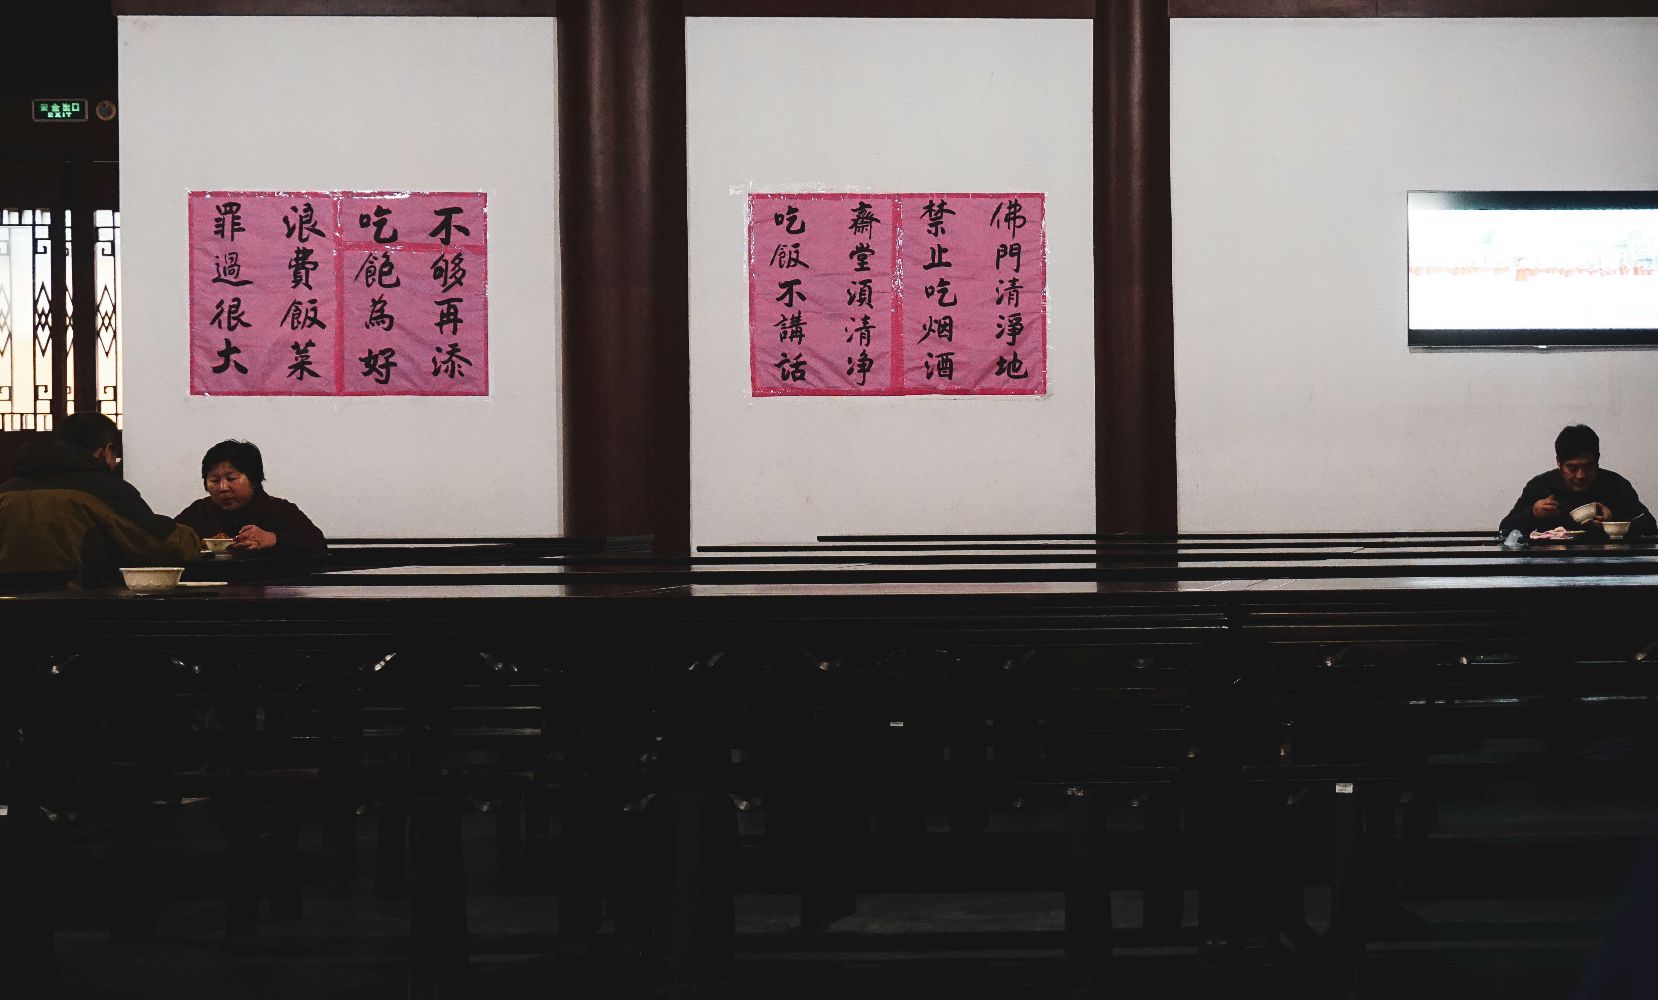 安全出口
EXIT
不够再添
吃飽為好
浪費飯菜
罪過很大
佛門清淨地
禁止吃烟酒
齋堂須清净
吃飯不講話